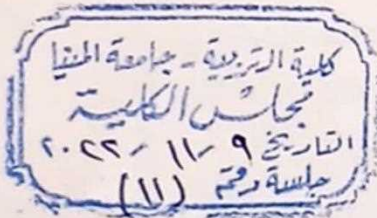 كلية التربية - جامعة المنيا
مجلس الكلية
التاريخ ٩ / ١١ / ٢٠٢٢
جلسة رقم (١١)